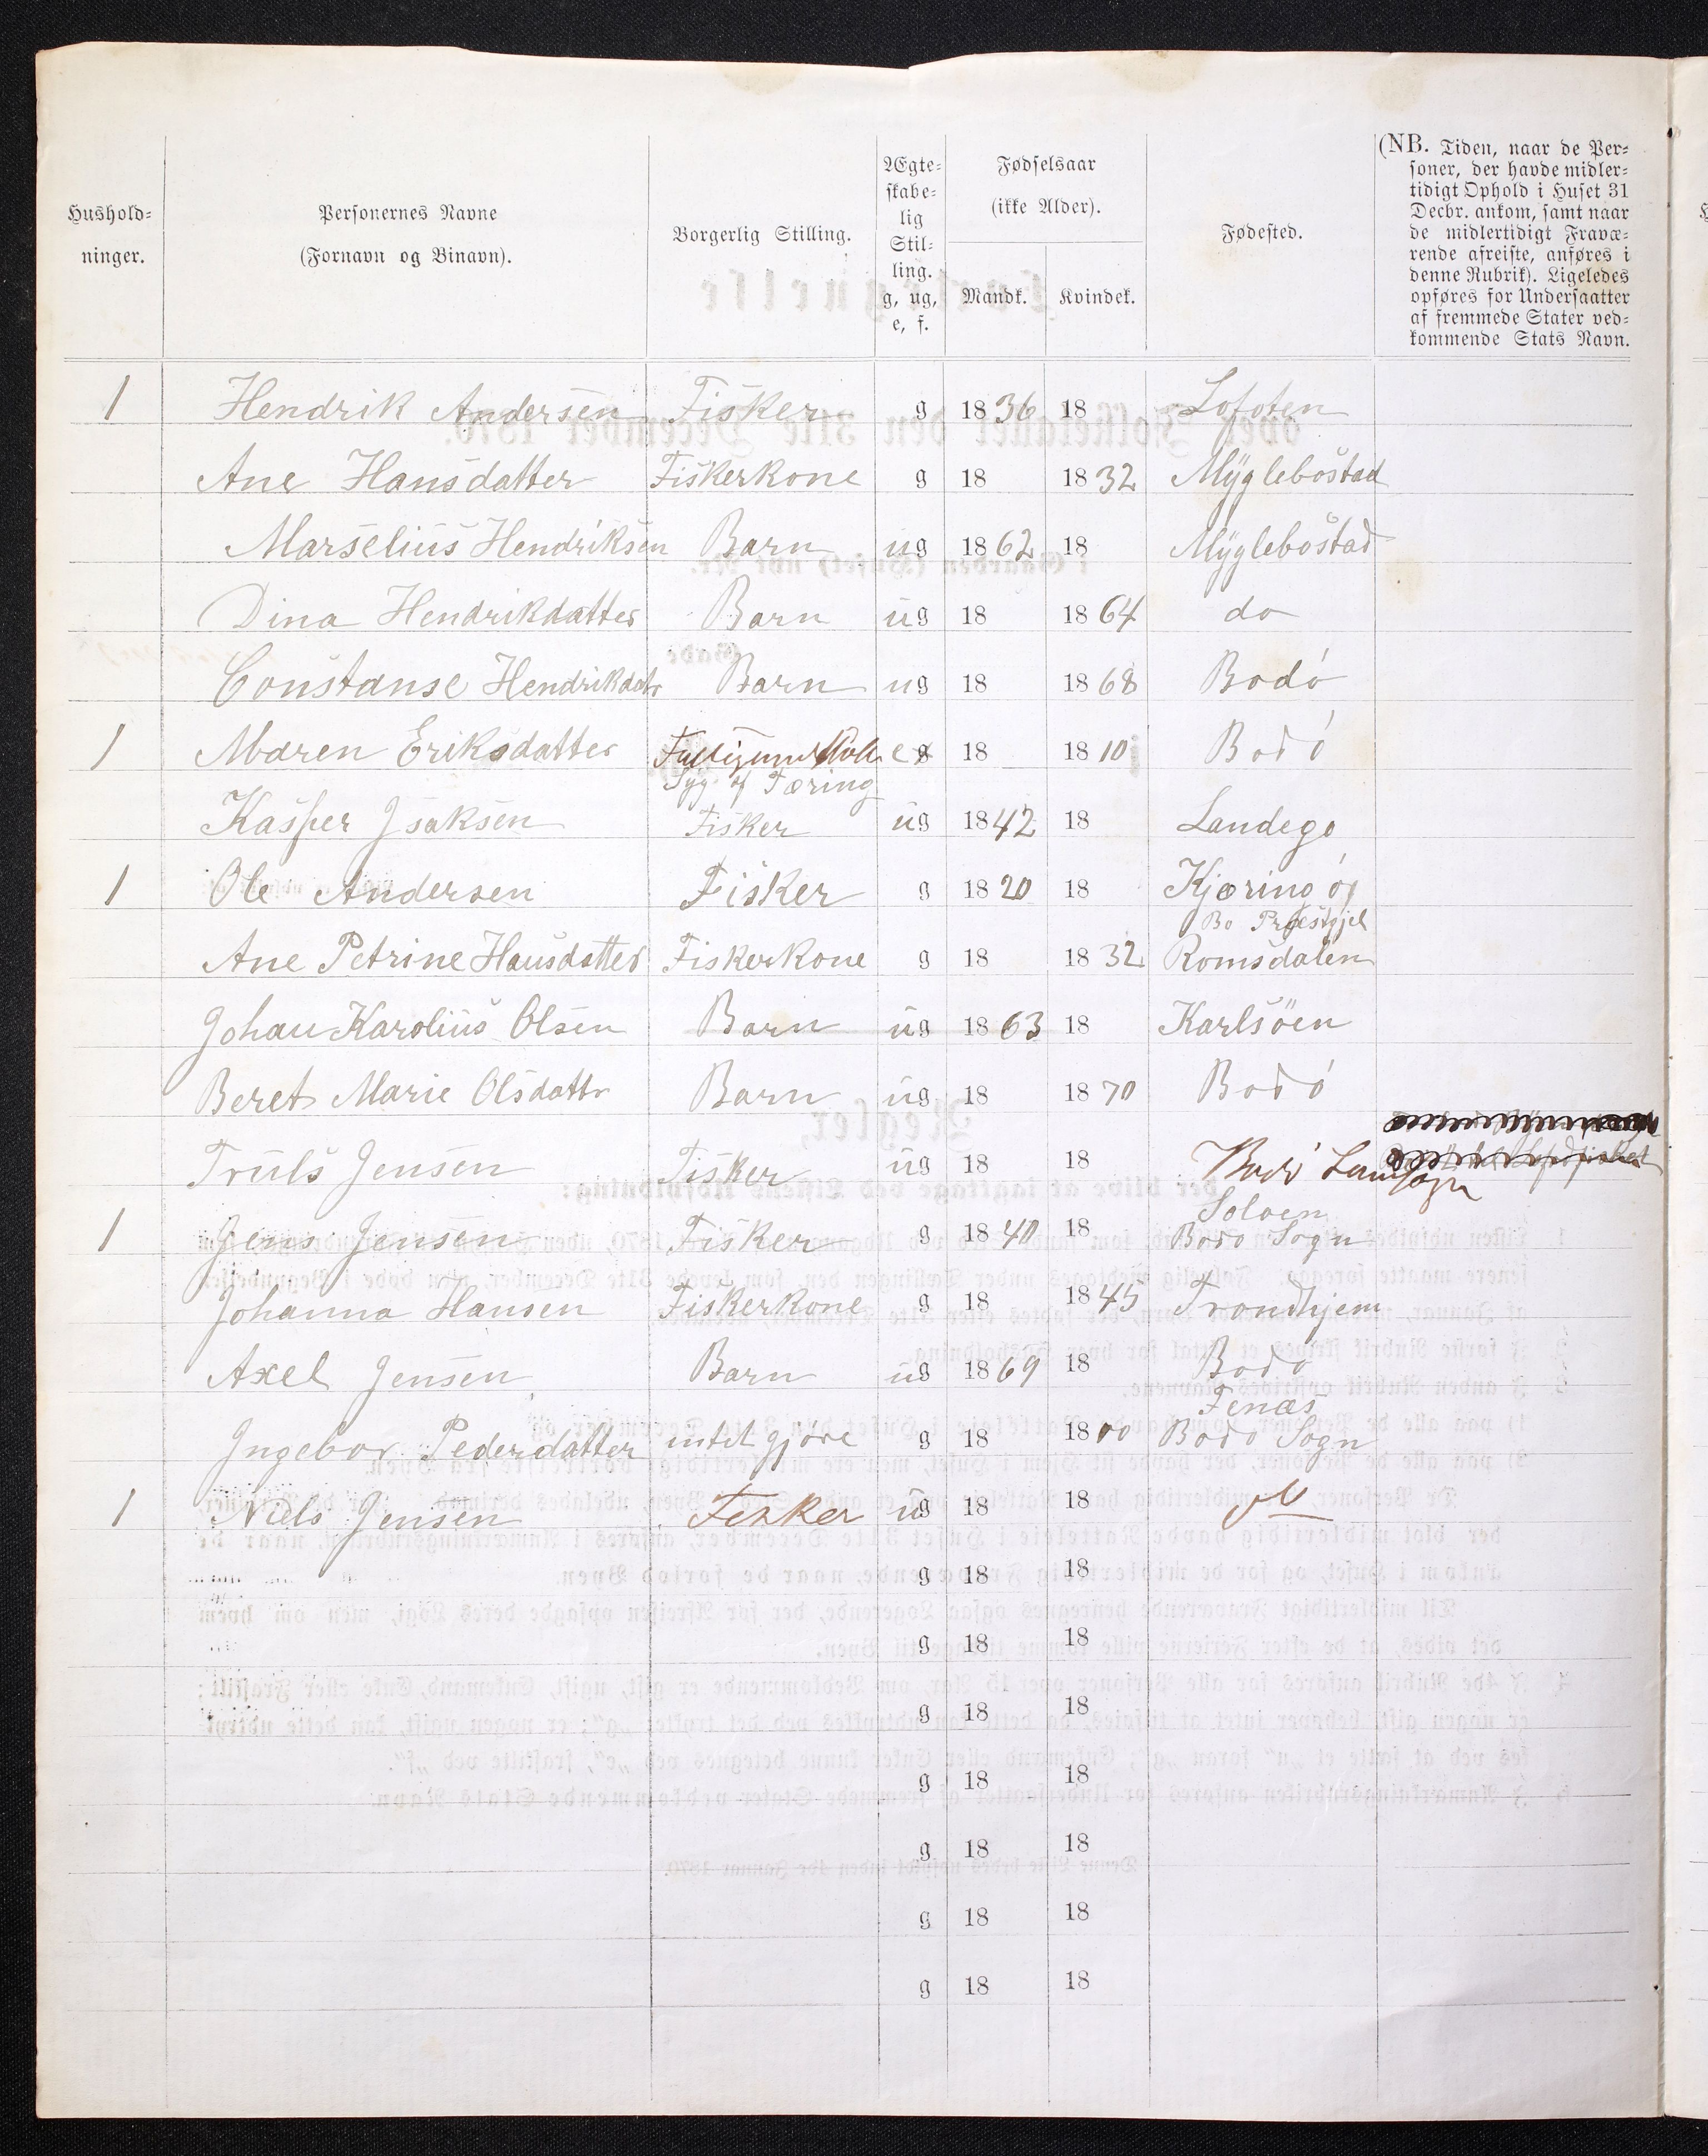 Hushold-
ninger.
Personernes Navne
(Fornavn og Binavn).
Borgerlig Stilling.
Ægte-
skabe-
lig
Stil-
ling.
g, ug,
e, f.
Fødselsaar
(ikke Alder).
Mandk. Kvindek.
Fødested.
(NB. Tiden, naar de Per-
soner, der havde midler-
tidigt Ophold i Huset 31
Decbr. ankom, samt naar
de midlertidigt Fravæ-
rende afreiste, anføres i
denne Rubrik). Ligeledes
opføres for Undersaatter
af fremmede Stater ved-
kommende Stats Navn.
1 Hendrik Andersen Fisker g 1836 18 Lofoten
Ane Hansdatter Fiskerkone g 18 1832 Myglebostad
Marselius Hendriksen Barn ug 1862 18 Myglebostad
Dina Hendrikdatter Barn ug 18 1864 do
Constanse Hendrikdatr Barn ug 18 1868 Bodó
1 Maren Eriksdatter e g 18 1810 Bodó
Syg af Tæring
Kasper Isaksen Fisker ug 1842 18 Landego
1 Ole Andersen Fisker g 1820 18 Kjæringó
Bo Præstgjel
Ane Petrine Hansdatter Fiskerkone g 18 1832 Romsdalen
Johan Karolius Olsen Barn ug 1863 18 Karlsöen
Beret Marie Olsdattr Barn ug 18 1870 Bodó
Truls Jensen Fisker ug 18 18 Bodó Landsogn
Soloen
1 Jens Jensen Fisker g 1840 18 Bodo Sogn
Johanna Hansen Fiskerkone g 18 1845 Trondhjem
Axel Jensen Barn ug 1869 18 Bodo
Fenæs
Ingebor Pederdatter intet gjöre g 18 1800 Bodo Sogn
1 Niels Jensen Fisker ug 18 18
g 18 18
g 18 18
g 18 18
g 18 18
g 18 18
g 18 18
g 18 18